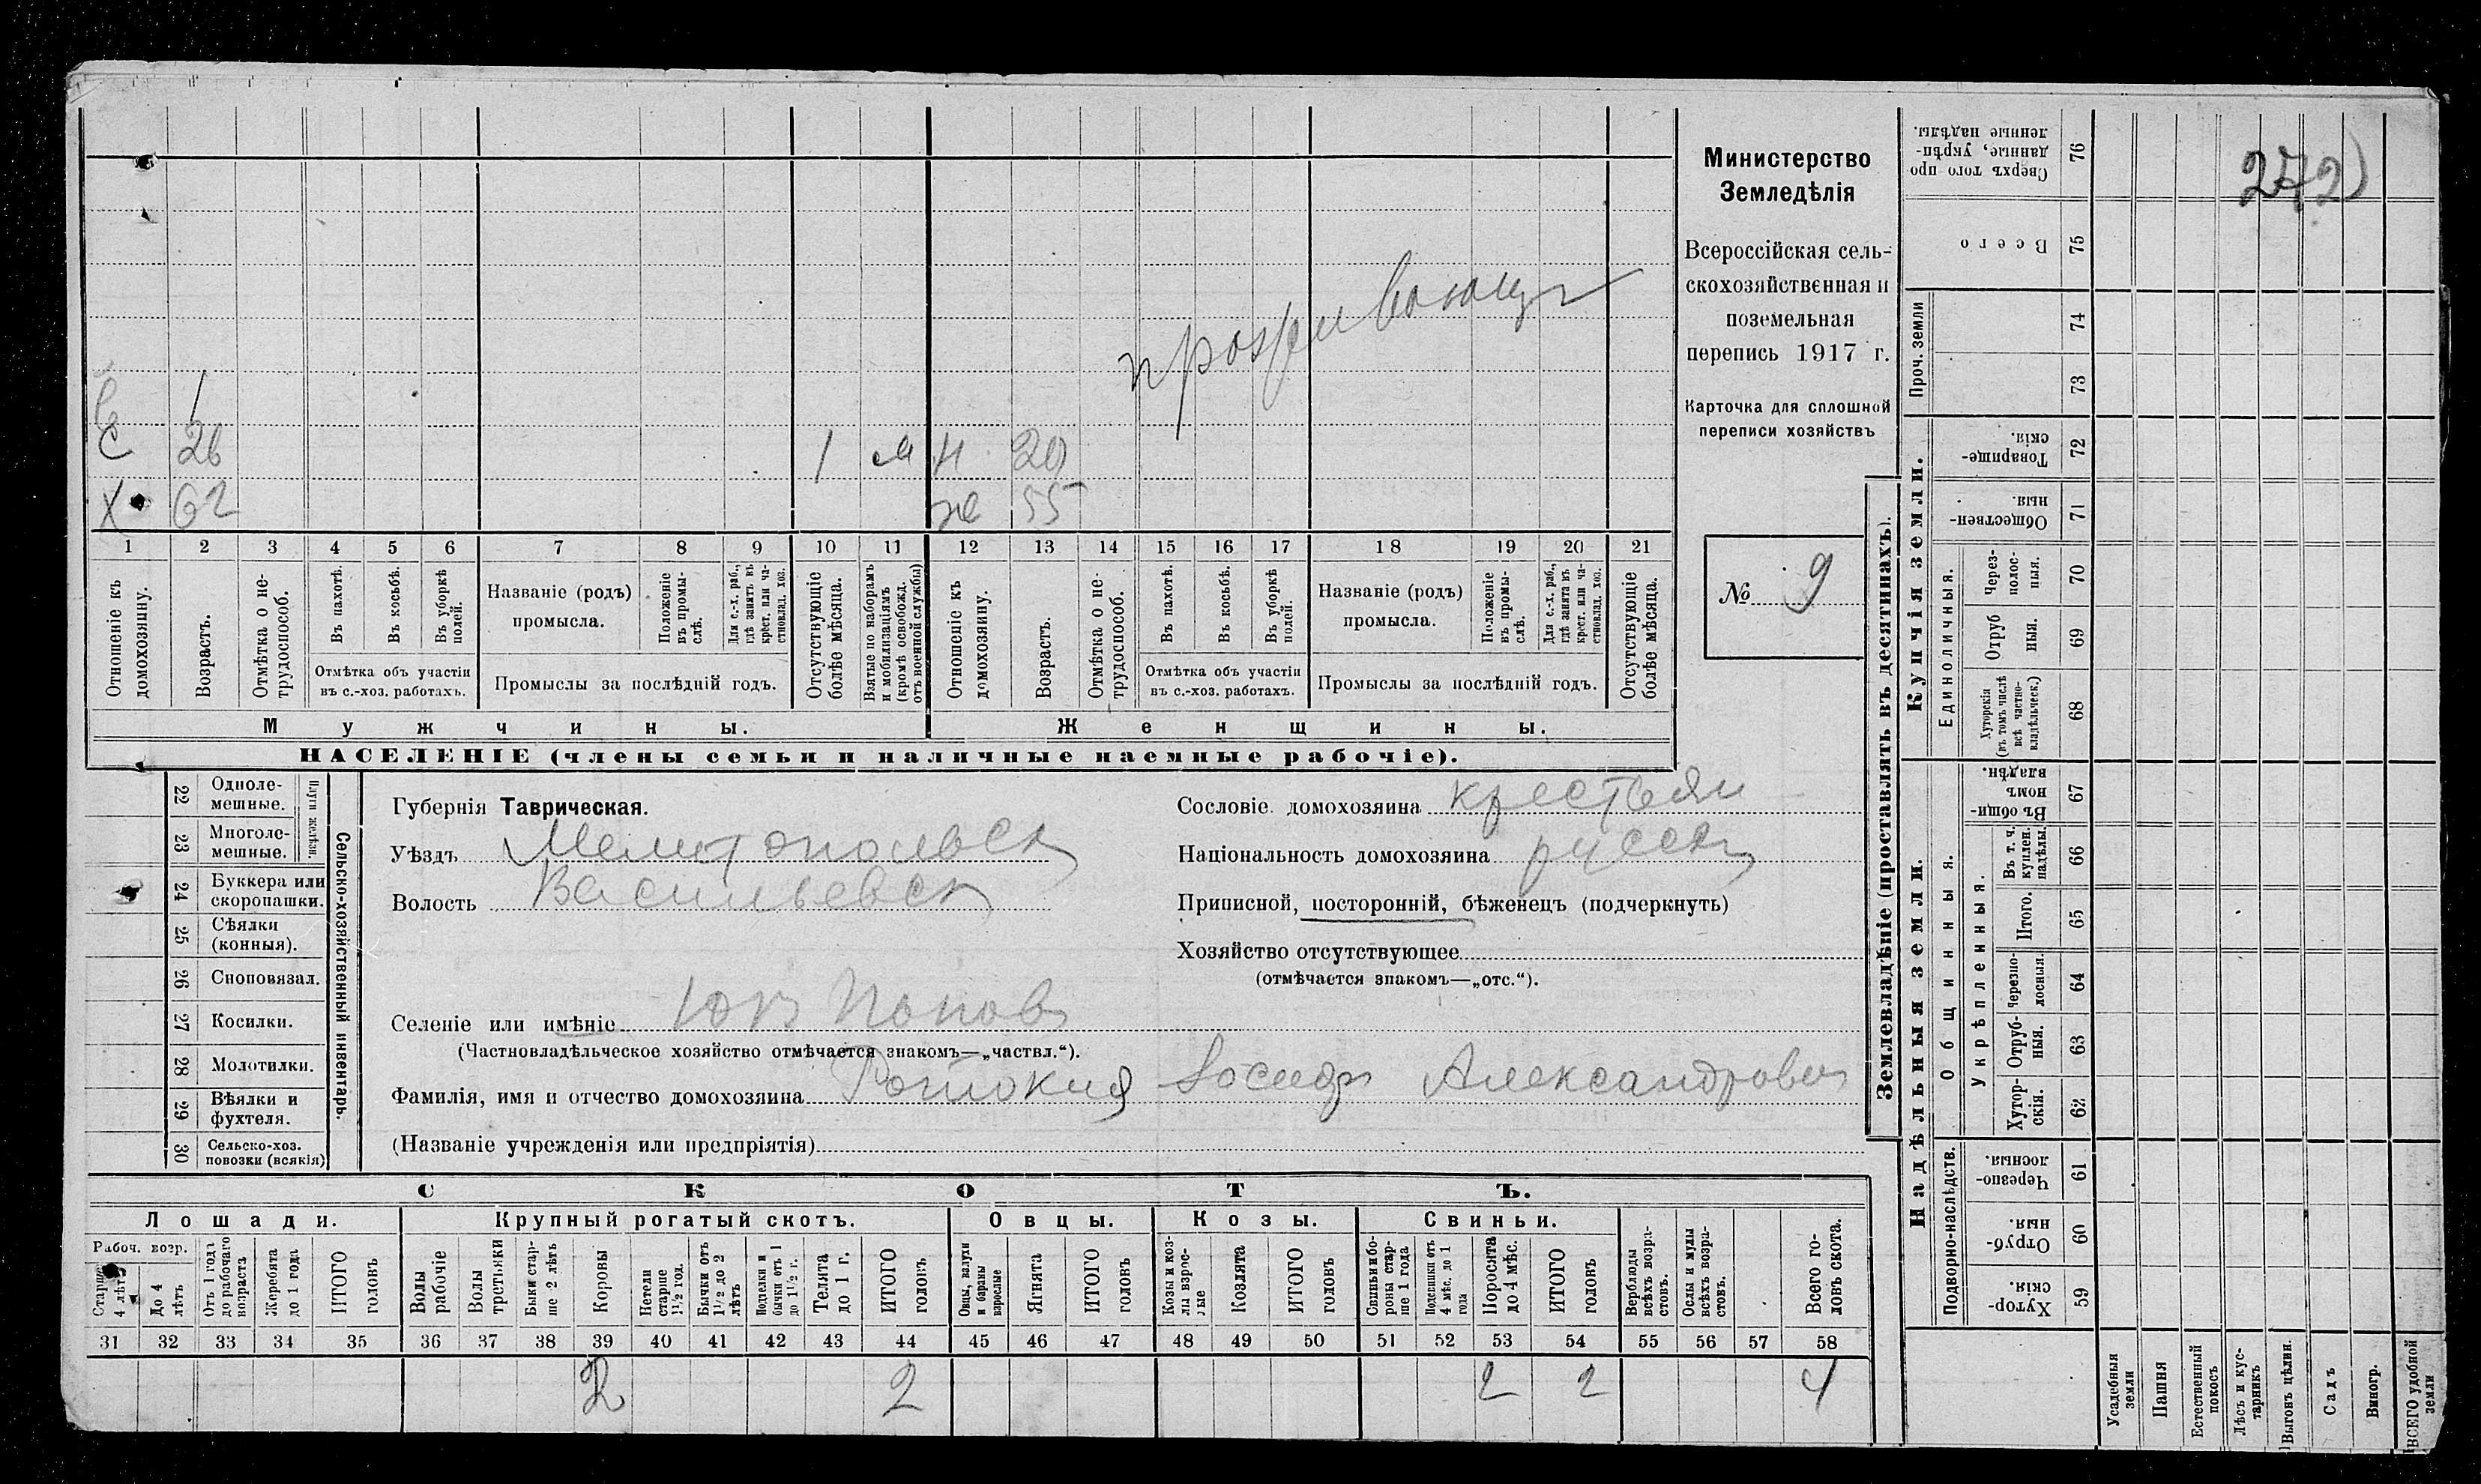 272)
Министерство
Земледѣлія
Всероссійская сель-
скохозяйственная и
поземельная
перепись 1917 г.
Карточка для сплошной
переписи хозяйствъ
№ 9
проживающ
С 26 1 м н 20
Х 62 ж 55
1 2 3 4 5 6 7 8 9 10 11 12 13 14 15 16 17 18 19 20 21
Отношеніе къ домохозяину.
Возрастъ.
Отмѣтка о не-трудоспособ.
Въ пахотѣ.
Въ косьбѣ.
Въ уборкѣ полей.
Отмѣтка объ участіи
въ с.-хоз. работахъ.
Названіе (родъ)
промысла.
Положеніе въ промы-слѣ.
Для с.-х. раб., гдѣ занятъ въ крест. или ча-стновлад. хоз.
Промыслы за послѣдній годъ.
Отсутствующіе болѣе мѣсяца.
Взятые по наборамъ и мобилизаціямъ (кромѣ освобожд. отъ военной службы)
Отношеніе къ домохозяину.
Возрастъ.
Отмѣтка о не-трудоспособ.
Въ пахотѣ.
Въ косьбѣ.
Въ уборкѣ полей.
Отмѣтка объ участіи
въ с.-хоз. работахъ.
Названіе (родъ)
промысла.
Положеніе въ промы-слѣ.
Для с.-х. раб., гдѣ занята въ крест. или ча-стновлад. хоз.
Промыслы за послѣдній годъ.
Отсутствующіе болѣе мѣсяца.
Мужчины.
Женщины.
НАСЕЛЕНІЕ (члены семьи и наличные наемные рабочіе).
Сельско-хозяйственный инвентарь.
Плуги желѣзн.
22 Одноле-мешные.
23 Многоле-мешные.
24 Буккера или скоропашки.
25 Сѣялки (конныя).
26 Сноповязал.
27 Косилки.
28 Молотилки.
29 Вѣялки и фухтеля.
30 Сельско-хоз. повозки (всякія)
Губернія Таврическая.
Уѣздъ Мелитопольск
Волость Васильевск
Селеніе или имѣніе Попов
(Частновладѣльческое хозяйство отмѣчается знакомъ—„частвл.“).
Фамилія, имя и отчество домохозяина Иосиф Александрович
(Названіе учрежденія или предпріятія)
Сословіе домохозяина крестьян
Національность домохозяина русск
Приписной, посторонній, бѣженецъ (подчеркнуть)
Хозяйство отсутствующее
(отмѣчается знакомъ—„отс.“).
СКОТЪ.
Лошади.
Крупный рогатый скотъ.
Овцы.
Козы.
Свиньи.
Рабоч. возр.
Старше 4 лѣтъ
До 4 лѣтъ
Отъ 1 года до рабочаго возраста
Жеребята до 1 года
ИТОГО головъ
Волы рабочіе
Волы третьяки
Быки стар-ше 2 лѣтъ
Коровы
Нетели старше 1½ год.
Бычки отъ 1½ до 2 лѣтъ
Подтелки и бычки отъ 1 до 1½ г.
Телята до 1 г.
ИТОГО головъ
Овцы, валухи и бараны взрослые
Ягнята
ИТОГО головъ
Козы и коз-лы взрос-лые
Козлята
ИТОГО головъ
Свиньи и бо-ровы стар-ше 1 года
Подсвинки отъ 4 мѣс. до 1 года
Поросята до 4 мѣс.
ИТОГО головъ
Верблюды всѣхъ возра-стовъ.
Ослы и мулы всѣхъ возра-стовъ.
Всего го-ловъ скота.
31 32 33 34 35 36 37 38 39 40 41 42 43 44 45 46 47 48 49 50 51 52 53 54 55 56 57 58
2 2 2 2 4
Землевладѣніе (проставлять въ десятинахъ).
Купчія земли.
Надѣльныя земли.
Проч. земли
Единоличныя.
Общинныя.
Укрѣпленныя.
Подворно-наслѣдств.
Сверхъ того про-данные, укрѣп-ленные надѣлы. 76
Всего 75
74
73
Товарище-скія. 72
Обществен-ныя. 71
Через-полос-ныя. 70
Отруб ныя. 69
Хуторскія (въ томъ числѣ всѣ частно-владѣльческ.) 68
Въ общи-номъ владѣн. 67
Въ т. ч. куплен. надѣлы. 66
Итого. 65
Черезпо-лосныя. 64
Отруб-ныя. 63
Хутор-скія. 62
Черезпо-лосныя. 61
Отруб-ныя. 60
Хутор-скія. 59
Усадебныя земли
Пашня
Естественный покосъ
Лѣсъ и кус-тарникъ
Выгонъ цѣлин.
Садъ
Виногр.
ВСЕГО удобной земли